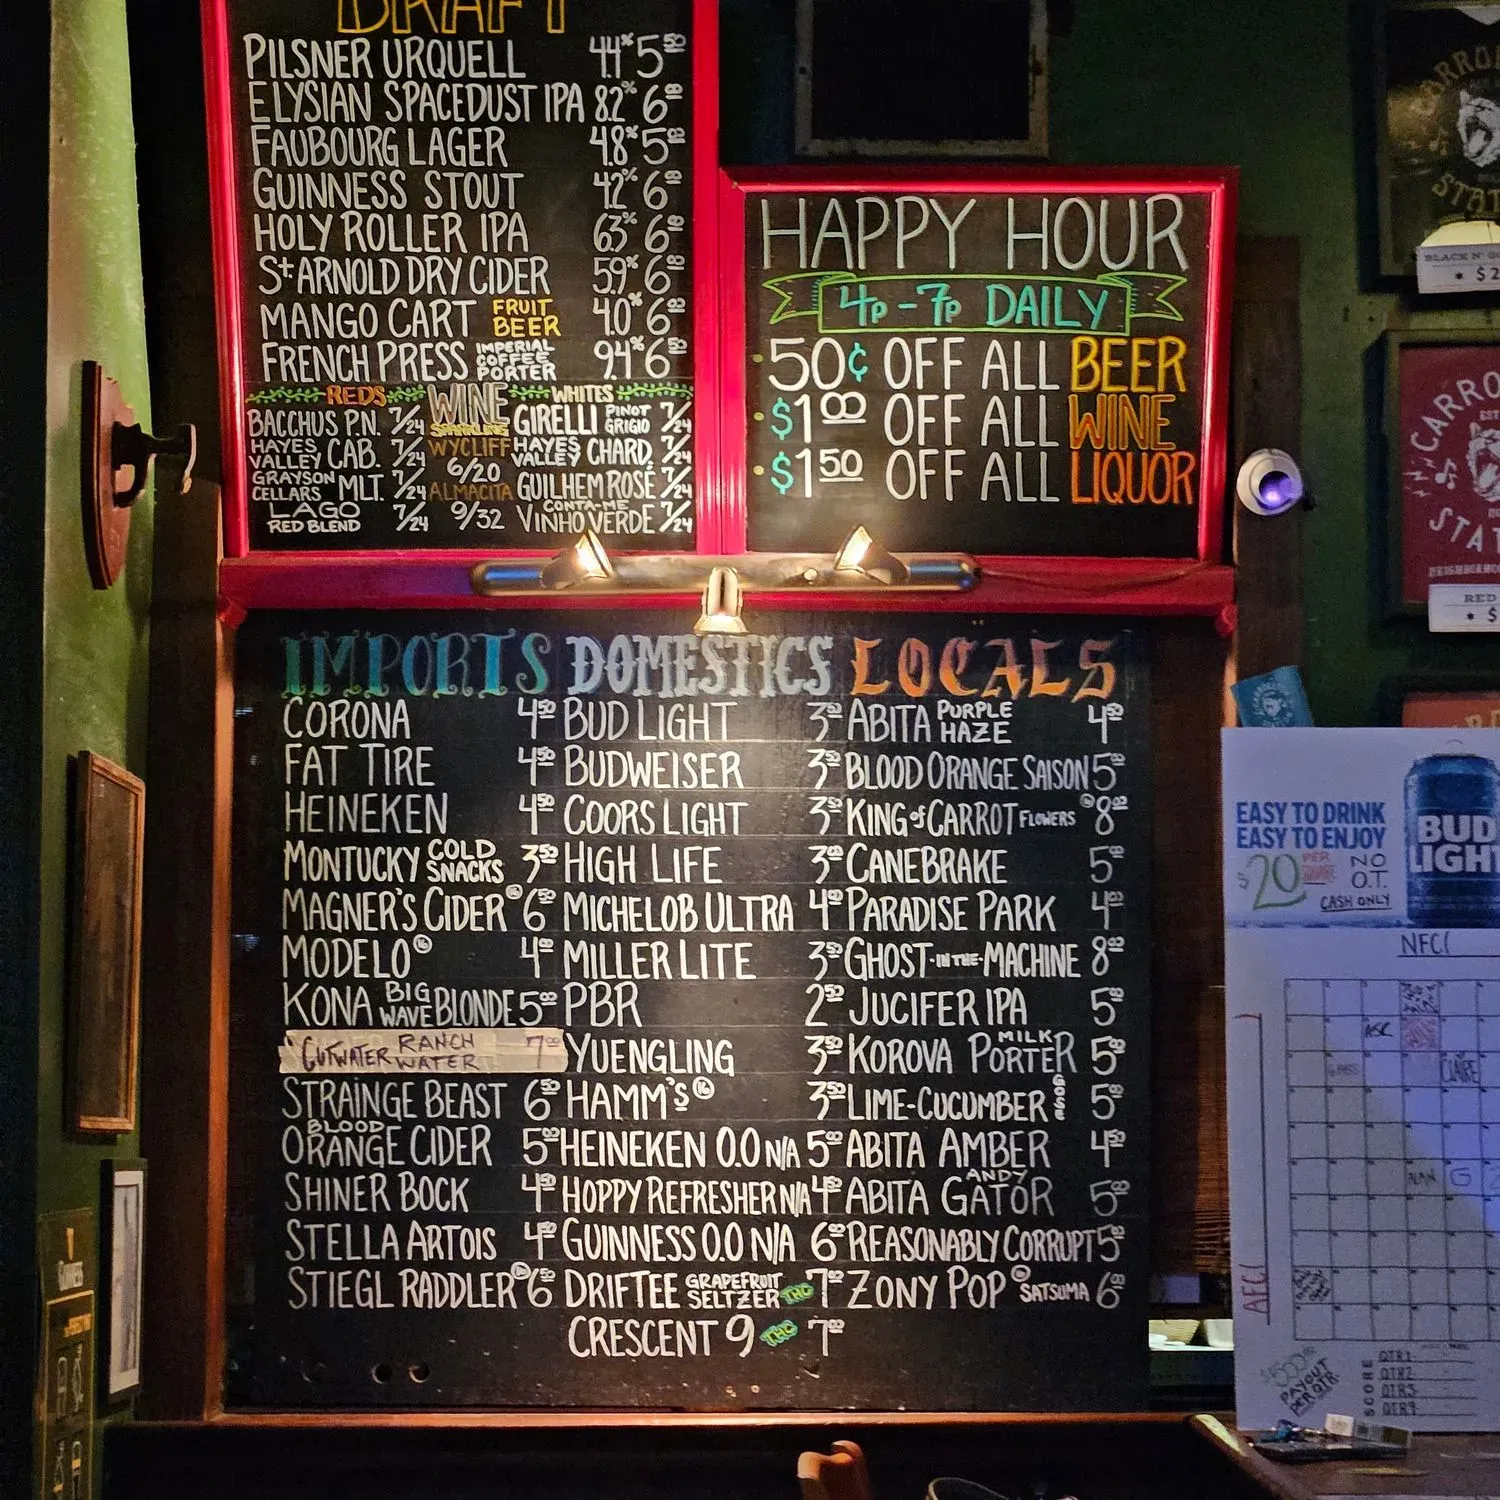 DRAFT
PILSNER URQUELL 4.4% 5.50
ELYSIAN SPACEDUST IPA 8.2% 6.00
FAUBOURG LAGER 4.8% 5.00
GUINNESS STOUT 4.2% 6.00
HOLY ROLLER IPA 6.3% 6.00
St. ARNOLD DRY CIDER 5.9% 6.00
MANGO CART FRUIT BEER 4.0% 6.00
FRENCH PRESS IMPERIAL COFFEE PORTER 9.4% 6.50
REDS WINE WHITES
SPARKLING
BACCHUS P.N. 7/24
HAYES VALLEY CAB. 7/24
GRAYSON CELLARS MLT. 7/24
LAGO RED BLEND 7/24
WYCLIFF
6/20
ALMACITA
9/32
GIRELLI PINOT GRIGIO 7/24
HAYES VALLEY CHARD. 7/24
GUILHEM ROSÉ 7/24
CONTA-ME VINHO VERDE 7/24
HAPPY HOUR
4P-7P DAILY
50¢ OFF ALL BEER
$1.00 OFF ALL WINE
$1.50 OFF ALL LIQUOR
IMPORTS
CORONA 4.50
FAT TIRE 4.50
HEINEKEN 4.50
MONTUCKY COLD SNACKS 3.50
MAGNER'S CIDER 16 6.50
MODELO 16 4.00
KONA BIG WAVE BLONDE 5.00
CUTWATER RANCH WATER 7.00
STRAINGE BEAST 6.50
BLOOD ORANGE CIDER 5.00
SHINER BOCK 4.50
STELLA ARTOIS 4.50
STIEGL RADDLER 16 6.50
DOMESTICS
BUD LIGHT 3.50
BUDWEISER 3.50
COORS LIGHT 3.50
HIGH LIFE 3.00
MICHELOB ULTRA 4.00
MILLER LITE 3.50
PBR 2.50
YUENGLING 3.50
HAMM'S 16 3.50
HEINEKEN 0.0 N/A 5.00
HOPPY REFRESHER N/A 4.50
GUINNESS 0.0 N/A 6.00
DRIFTEE GRAPEFRUIT SELTZER THC 7.00
CRESCENT 9 THC 7.00
LOCALS
ABITA PURPLE HAZE 4.50
BLOOD ORANGE SAISON 5.00
KING of CARROT FLOWERS 16 8.00
CANEBRAKE 5.00
PARADISE PARK 4.00
GHOST-IN-THE-MACHINE 8.00
JUCIFER IPA 5.00
KOROVA MILK PORTER 5.00
LIME-CUCUMBER GOSE 5.00
ABITA AMBER 4.50
ABITA ANDYGATOR 5.00
REASONABLY CORRUPT 5.00
ZONY POP SATSUMA 6.00
BLACK N'
CARRO
STAT
NEIGHBORHOO
RED
EASY TO DRINK
EASY TO ENJOY
BUD
LIGHT
$20 PER SQUARE NO O.T.
CASH ONLY
NFC
AFC
ASC
CLAIRE
PAYOUT
PER QTR.
SCORE
QTR1
QTR2
QTR3
QTR4
GUINNESS